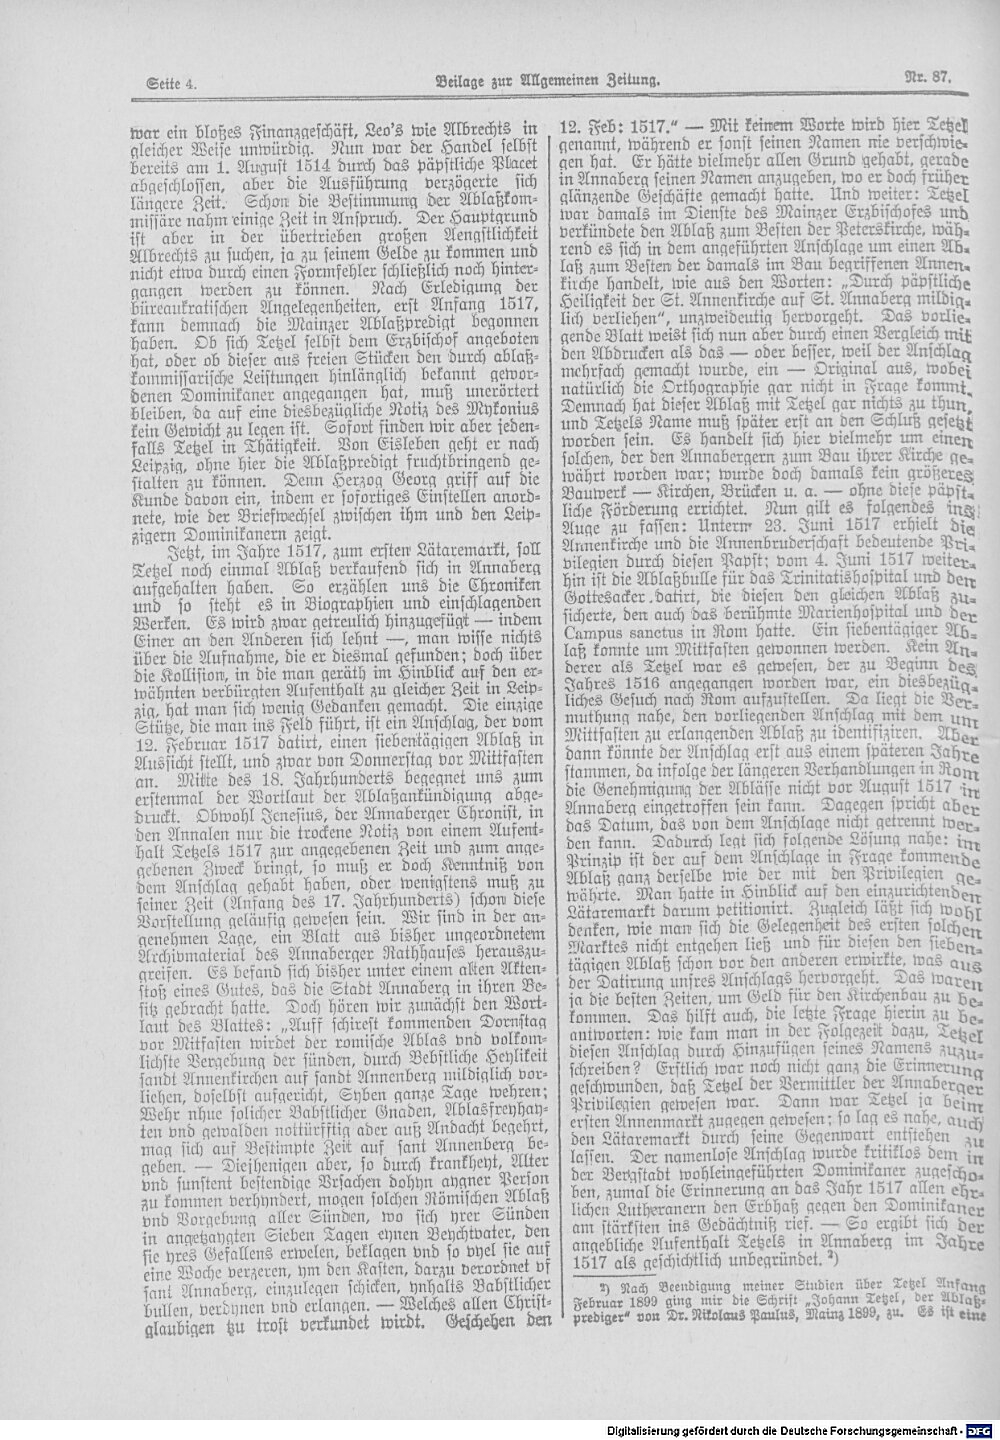 Seite 4.
Beilage zur Allgemeinen Zeitung.
Nr. 87.
war ein bloßes Finanzgeschäft, Leo's wie Albrechts in
gleicher Weise unwürdig. Nun war der Handel selbst
bereits am 1. August 1514 durch das päpstliche Placet
abgeschlossen, aber die Ausführung verzögerte sich
längere Zeit. Schon die Bestimmung der Ablaßkom-
missäre nahm einige Zeit in Anspruch. Der Hauptgrund
ist aber in der übertrieben großen Aengstlichkeit
Albrechts zu suchen, ja zu seinem Gelde zu kommen und
nicht etwa durch einen Formfehler schließlich noch hinter-
gangen werden zu können. Nach Erledigung der
büreaukratischen Angelegenheiten, erst Anfang 1517,
kann demnach die Mainzer Ablaßpredigt begonnen
haben. Ob sich Tetzel selbst dem Erzbischof angeboten
hat, oder ob dieser aus freien Stücken den durch ablaß-
kommissarische Leistungen hinlänglich bekannt gewor-
denen Dominikaner angegangen hat, muß unerörtert
bleiben, da auf eine diesbezügliche Notiz des Mykonius
kein Gewicht zu legen ist. Sofort finden wir aber jeden-
falls Tetzel in Thätigkeit. Von Eisleben geht er nach
Leipzig, ohne hier die Ablaßpredigt fruchtbringend ge-
stalten zu können. Denn Herzog Georg griff auf die
Kunde davon ein, indem er sofortiges Einstellen anord-
nete, wie der Briefwechsel zwischen ihm und den Leip-
zigern Dominikanern zeigt.
Jetzt, im Jahre 1517, zum ersten Lätaremarkt, soll
Tetzel noch einmal Ablaß verkaufend sich in Annaberg
aufgehalten haben. So erzählen uns die Chroniken
und so steht es in Biographien und einschlagenden
Werken. Es wird zwar getreulich hinzugefügt — indem
Einer an den Anderen sich lehnt —, man wisse nichts
über die Aufnahme, die er diesmal gefunden; doch über
die Kollision, in die man geräth im Hinblick auf den er-
wähnten verbürgten Aufenthalt zu gleicher Zeit in Leip-
zig, hat man sich wenig Gedanken gemacht. Die einzige
Stütze, die man ins Feld führt, ist ein Anschlag, der vom
12. Februar 1517 datirt, einen siebentägigen Ablaß in
Aussicht stellt, und zwar von Donnerstag vor Mittfasten
an. Mitte des 18. Jahrhunderts begegnet uns zum
erstenmal der Wortlaut der Ablaßankündigung abge-
druckt. Obwohl Jenesius, der Annaberger Chronist, in
den Annalen nur die trockene Notiz von einem Aufent-
halt Tetzels 1517 zur angegebenen Zeit und zum ange-
gebenen Zweck bringt, so muß er doch Kenntniß von
dem Anschlag gehabt haben, oder wenigstens muß zu
seiner Zeit (Anfang des 17. Jahrhunderts) schon diese
Vorstellung geläufig gewesen sein. Wir sind in der an-
genehmen Lage, ein Blatt aus bisher ungeordnetem
Archivmaterial des Annaberger Rathhauses herauszu-
greifen. Es befand sich bisher unter einem alten Akten-
stoß eines Gutes, das die Stadt Annaberg in ihren Be-
sitz gebracht hatte. Doch hören wir zunächst den Wort-
laut des Blattes: „Auff schirest kommenden Dornstag
vor Mitfasten wirdet der romische Ablas vnd volkom-
lichste Vergebung der sünden, durch Bebstliche Heylikeit
sandt Annenkirchen auf sandt Annenberg mildiglich vor-
liehen, doselbst aufgericht, Syben ganze Tage wehren;
Wehr nhue solicher Babstlicher Gnaden, Ablasfreyhay-
ten vnd gewalden notturfftig oder auß Andacht begehrt,
mag sich auf Bestimpte Zeit auf sant Annenberg be-
geben. — Diejhenigen aber, so durch krankheyt, Alter
vnd sunstent bestendige Vrsachen dohyn aygner Person
zu kommen verhyndert, mogen solchen Römischen Ablaß
vnd Vorgebung aller Sünden, wo sich yrer Sünden
in angetzaygten Sieben Tagen eynen Beychtvater, den
sie yres Gefallens erwelen, beklagen vnd so vyel sie auf
eine Woche verzeren, ym den Kasten, darzu verordnet vf
sant Annaberg, einzulegen schicken, ynhalts Babstlicher
bullen, verdynen vnd erlangen. — Welches allen Christ-
glaubigen tzu trost verkundet wirdt. Geschehen den
12. Feb: 1517.“ — Mit keinem Worte wird hier Tetzel
genannt, während er sonst seinen Namen nie verschwie-
gen hat. Er hätte vielmehr allen Grund gehabt, gerade
in Annaberg seinen Namen anzugeben, wo er doch früher
glänzende Geschäfte gemacht hatte. Und weiter: Tetzel
war damals im Dienste des Mainzer Erzbischofes und
verkündete den Ablaß zum Besten der Peterskirche, wäh-
rend es sich in dem angeführten Anschlage um einen Ab-
laß zum Besten der damals im Bau begriffenen Annen-
kirche handelt, wie aus den Worten: „Durch päpstliche
Heiligkeit der St. Annenkirche auf St. Annaberg mildig-
lich verliehen“, unzweideutig hervorgeht. Das vorlie-
gende Blatt weist sich nun aber durch einen Vergleich mit
den Abdrucken als das — oder besser, weil der Anschlag
mehrfach gemacht wurde, ein — Original aus, wobei
natürlich die Orthographie gar nicht in Frage kommt.
Demnach hat dieser Ablaß mit Tetzel gar nichts zu thun,
und Tetzels Name muß später erst an den Schluß gesetzt
worden sein. Es handelt sich hier vielmehr um einen
solchen, der den Annabergern zum Bau ihrer Kirche ge-
währt worden war; wurde doch damals kein größeres
Bauwerk — Kirchen, Brücken u. a. — ohne diese päpst-
liche Förderung errichtet. Nun gilt es folgendes ins
Auge zu fassen: Unterm 23. Juni 1517 erhielt die
Annenkirche und die Annenbruderschaft bedeutende Pri-
vilegien durch diesen Papst; vom 4. Juni 1517 weiter-
hin ist die Ablaßbulle für das Trinitatishospital und den
Gottesacker datirt, die diesen den gleichen Ablaß zu-
sicherte, den auch das berühmte Marienhospital und der
Campus sanctus in Rom hatte. Ein siebentägiger Ab-
laß konnte um Mittfasten gewonnen werden. Kein An-
derer als Tetzel war es gewesen, der zu Beginn des
Jahres 1516 angegangen worden war, ein diesbezüg-
liches Gesuch nach Rom aufzustellen. Da liegt die Ver-
muthung nahe, den vorliegenden Anschlag mit dem um
Mittfasten zu erlangenden Ablaß zu identifiziren. Aber
dann könnte der Anschlag erst aus einem späteren Jahre
stammen, da infolge der längeren Verhandlungen in Rom
die Genehmigung der Ablässe nicht vor August 1517 in
Annaberg eingetroffen sein kann. Dagegen spricht aber
das Datum, das von dem Anschlage nicht getrennt wer-
den kann. Dadurch legt sich folgende Lösung nahe: im
Prinzip ist der auf dem Anschlage in Frage kommende
Ablaß ganz derselbe wie der mit den Privilegien ge-
währte. Man hatte in Hinblick auf den einzurichtenden
Lätaremarkt darum petitionirt. Zugleich läßt sich wohl
denken, wie man sich die Gelegenheit des ersten solchen
Marktes nicht entgehen ließ und für diesen den sieben-
tägigen Ablaß schon vor den anderen erwirkte, was aus
der Datirung unsres Anschlags hervorgeht. Das waren
ja die besten Zeiten, um Geld für den Kirchenbau zu be-
kommen. Das hilft auch, die letzte Frage hierin zu be-
antworten: wie kam man in der Folgezeit dazu, Tetzel
diesen Anschlag durch Hinzufügen seines Namens zuzu-
schreiben? Erstlich war noch nicht ganz die Erinnerung
geschwunden, daß Tetzel der Vermittler der Annaberger
Privilegien gewesen war. Dann war Tetzel ja beim
ersten Annenmarkt zugegen gewesen; so lag es nahe, auch
den Lätaremarkt durch seine Gegenwart entstehen zu
lassen. Der namenlose Anschlag wurde kritiklos dem in
der Bergstadt wohleingeführten Dominikaner zugescho-
ben, zumal die Erinnerung an das Jahr 1517 allen ehr-
lichen Lutheranern den Erbhaß gegen den Dominikaner
am stärksten ins Gedächtniß rief. — So ergibt sich der
angebliche Aufenthalt Tetzels in Annaberg im Jahre
1517 als geschichtlich unbegründet.²)
²) Nach Beendigung meiner Studien über Tetzel Anfang
Februar 1899 ging mir die Schrift „Johann Tetzel, der Ablaß-
prediger“ von Dr. Nikolaus Paulus, Mainz 1899, zu. Es ist eine
Digitalisierung gefördert durch die Deutsche Forschungsgemeinschaft - DFG